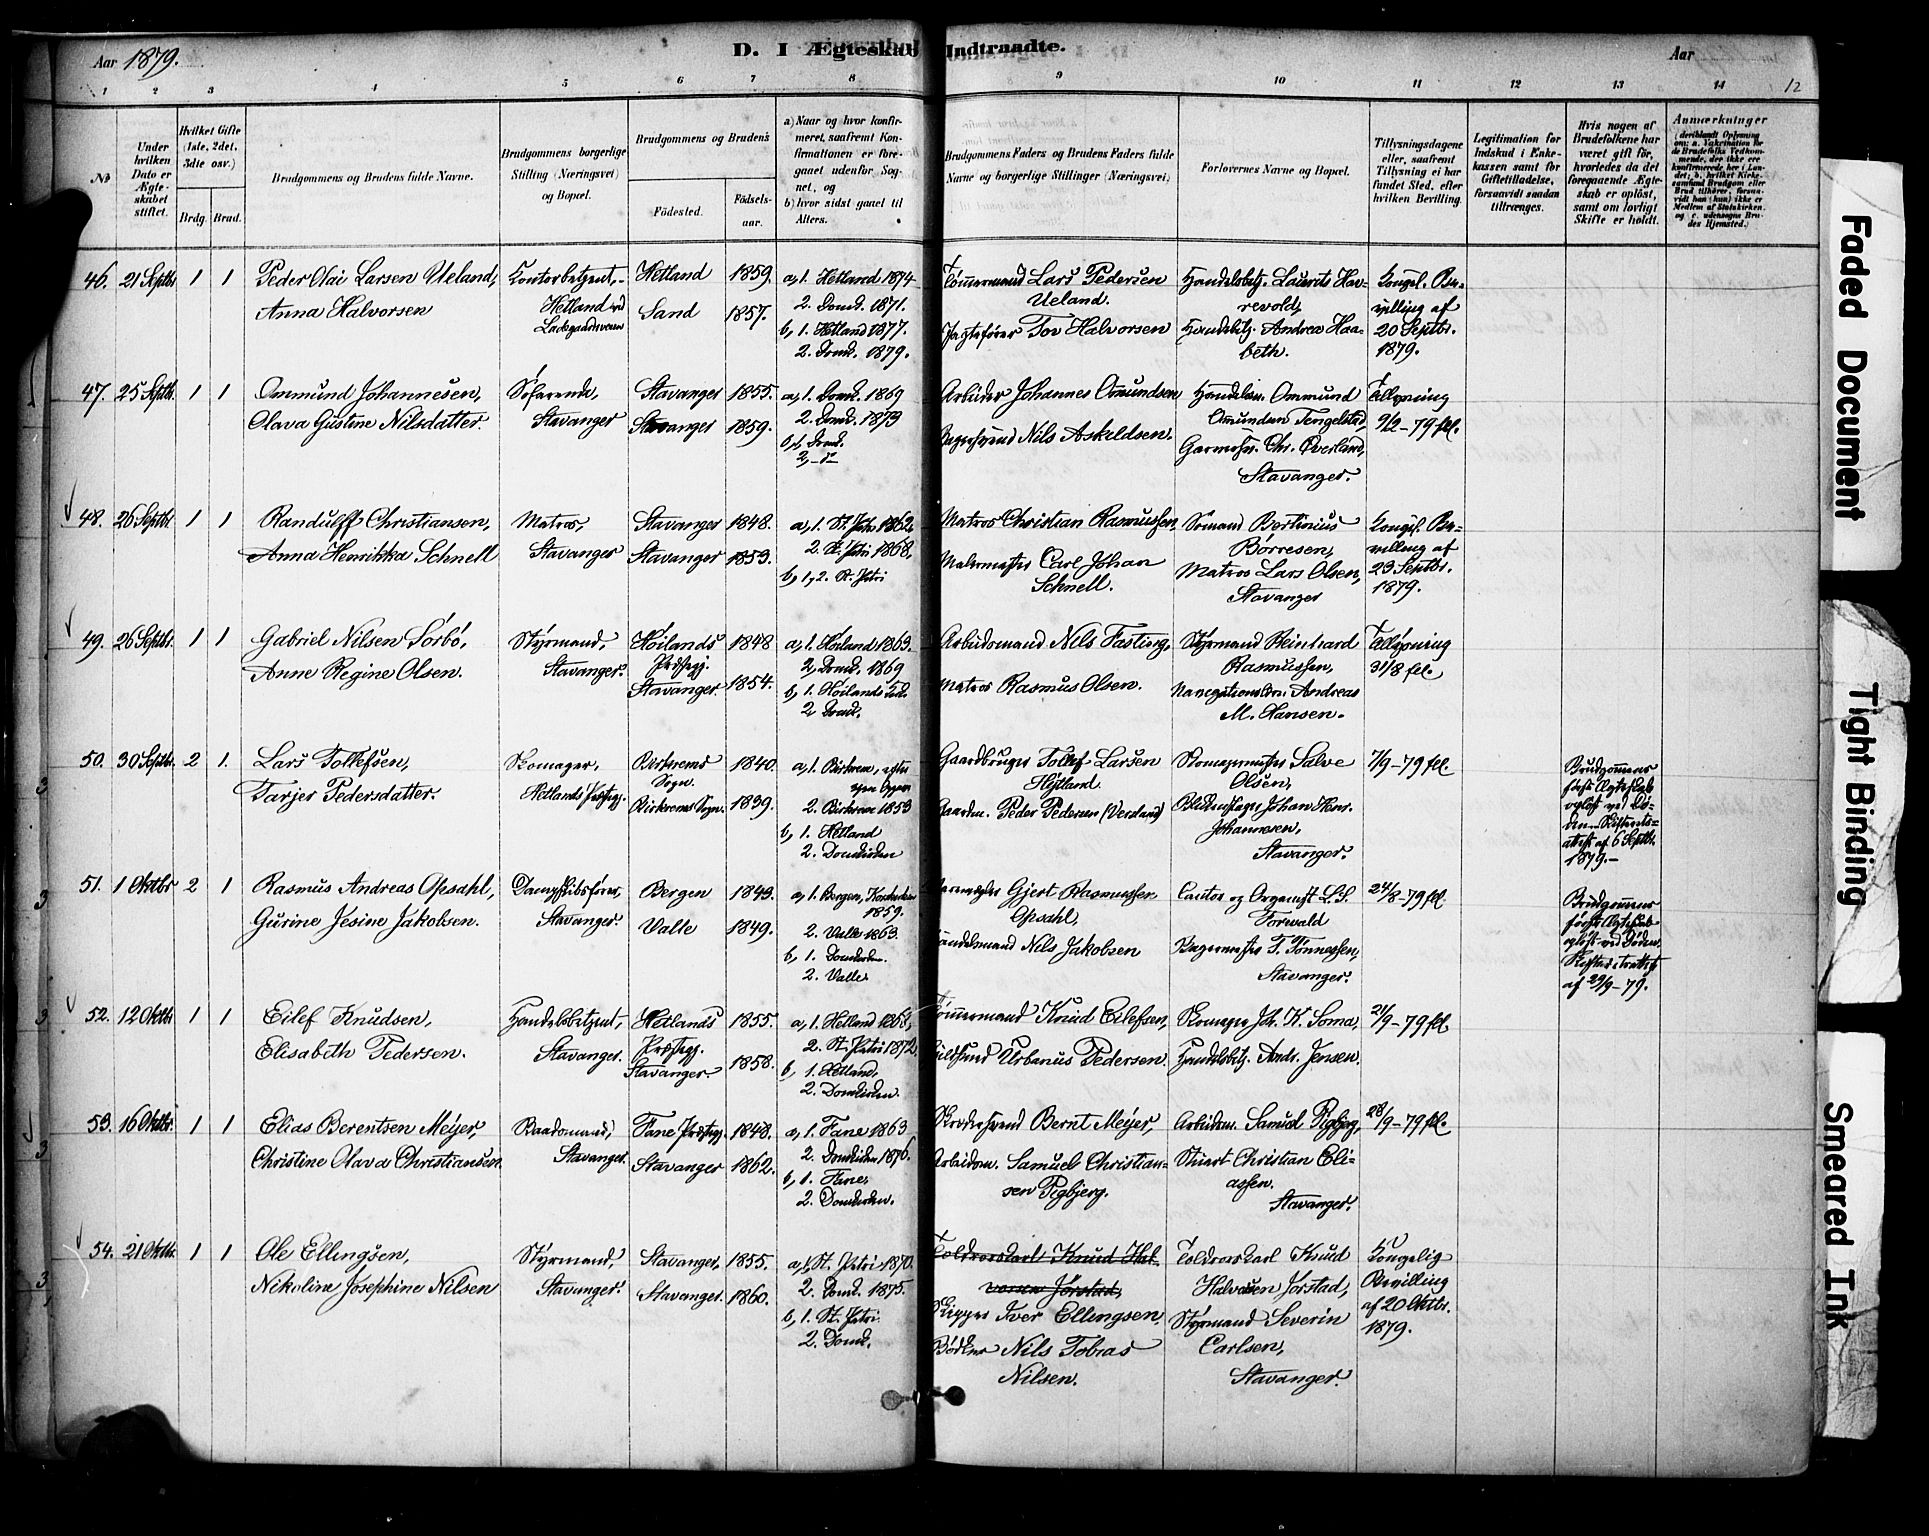 Aar 1879.
D. I Ægteskab Indtraadte.
Aar
12
1 2 3 4 5 6 7 8 9 10 11 12 13 14
No
Under hvilken Dato er Ægteskabet stiftet.
Hvilket Gifte (1ste, 2det, 3die osv.)
Brdg. Brud.
Brudgommens og Brudens fulde Navne.
Brudgommens borgerlige Stilling (Næringsvei) og Bopæl.
Brudgommens og Brudens
Födested.
Födselsaar.
a) Naar og hvor konfirmeret, saafremt Konfirmationen er foregaaet udenfor Sognet, og
b) hvor sidst gaaet til Alters.
Brudgommens Faders og Brudens Faders fulde Navne og borgerlige Stillinger (Næringsvei)
Forlovernes Navne og Bopæl.
Tillysningsdagene eller, saafremt Tillysning ei har fundet Sted, efter hvilken Bevilling.
Legitimation for Indskud i Enkekassen samt for Giftetilladelse, forsaavidt saadan tiltrænges.
Hvis nogen af Brudefolkene har været gift før, hvorledes da det foregaaende Ægteskab er oplöst, samt om lovligt Skifte er holdt.
Anmærkninger
46. 21 Septbr 1 1 Peder Olai Larsen Ueland, Kontorbetjent, Hetland 1859. a, 1. Hetland 1874 Tømmermand Lars Pedersen Ueland. Handelsbetj. Laurits Havrevold, Kongel. Bevilling af 20 Septbr. 1879.
Anna Halvorsen Hetland ved Ladegaardsveien Sand 1857. 2. Domk. 1871. b, 1. Hetland 1877. 2. Domk. 1879. Jagtefører Tov Halvorsen Handelsbetj. Andrea Haabeth.
47. 25 Septbr. 1 1 Ommund Johannesen, Søfarende, Stavanger 1855. a, 1. Domk. 1869 Arbeider Johannes Omundsen Ommund Omundsen Tengelstad, Tillysning 9/2-79 fl.
Olava Gustine Nilsdatter. Stavanger Stavanger 1859. 2. Domk. 1873 b, 1. Domk. 2, - d - Nils Askeldsen. Chr. Overland, Stavanger.
48. 26 Septbr 1 1 Randulff Christiansen, Matros, Stavanger 1848. a, 1. St. Petri 1862. Matros Christian Rasmussen, Sømand Bertinius Børresen, Kongel. Bevilling af 23 Septbr. 1879.
Anna Henrikka Schnell Stavanger Stavanger 1853. 2. St. Petri 1868. b, 1, 2. St. Petri Malermester Carl Johan Schnell. Matros Lars Olsen, Stavanger
49. 26 Septbr. 1 1 Gabriel Nilsen Sørbø, Styrmand, Høilands Præstegj. 1848 a, 1. Høiland 1863. Arbeidsmand Nils Fasting, Styrmand Reinhard Rasmussen, Tillysning 31/8 fl.
Anne Regine Olsen. Stavanger. Stavanger 1854. 2, Domk. 1869 b, 1. Høilands 2 Domk. Matros Rasmus Olsen. Andreas M. Hansen.
50. 30 Septbr. 2 1. Lars Tollefsen, Skomager, Birkrems Sogn. 1840. a, 1. Birkrem, Gaardbruger Tollef Larsen Skomagermester Salve Olsen, 7/9-79 fl. Brudgommens første Ægteskab opløst ved Døden. Skifterets attest af 6 Septbr. 1879.-
Tarjer Pedersdatter. Hetlands Præstegj. Birkrems Sogn. 1839. 2. Birkrem 1853 b, 1. Hetland 2. Domkirken Gaardm. Peder Pedersen Johan Henr. Johannesen, Stavanger.
51. 1 Oktbr 2 1 Rasmus Andreas Opsahl, Dampskibsfører, Bergen 1843. a, 1. Bergen, Korskirken 1859. Gjert Rasmussen Opsahl, Cantor og Organist L. S. Forwald 24/8-79 fl. Brudgommens første Ægteskab opløst ved Døden. Skifteretsattest af 29/9-79.
Gurine Jesine Jakobsen. Stavanger. Valle 1849. 2. Valle 1863. b, 1. Domkirken. 2. Valle. Handelsmand Nils Jakobsen Bagermester T. Tønnessen, Stavanger.
52. 12 Oktbr 1 1 Eilef Knudsen, Handelsbetjent, Hetlands Præstegj. 1855. a, 1. Hetland 1868, Tømmermand Knud Eilefsen, Skomager Joh. K. Soma, 21/9-79 fl.
Elisabeth Pedersen. Stavanger. Stavanger. 1858. 2. St. Petri 1872. b, 1. Hetland, 2. Domkirken. Urbanus Pedersen. Handelsbetj. Andr. Jensen.
53. 16 Oktbr. 1 1 Elias Berentsen Meyer, Baadsmand, Fane Præstegj. 1848. a, 1. Fane 1863 Bernt Meyer, Arbeidsm. Samuel Pigbjerg, 28/9-79 fl.
Christine Olava Christiansen. Stavanger. Stavanger 1862. 2. Domkirken 1876. b, 1. Fane, 2. Domkirken. Arbeidsm. Samuel Christiansen Pigbjerg. Stuert Christian Eliassen. Stavanger.
54. 21 Oktbr. 1 1 Ole Ellingsen, Styrmand, Stavanger, 1855. a, 1. St. Petri 1870. Toldroerskarl Knud Halvorsen Jørstad, Toldroerskarl Knud Halvorsen Jørstad, Kongelig Bevilling af 20 Oktbr. 1879.
Nikoline Josephine Nilsen Stavanger. Stavanger. 1860. 2. Domk. 1875. b, 1. St. Petri. 2. Domk. Skipper Iver Ellingsen. Bødker Nils Tobias Nilsen. Styrmand Severin Carlsen, Stavanger.
Faded Document
Tight Binding
Smeared Ink